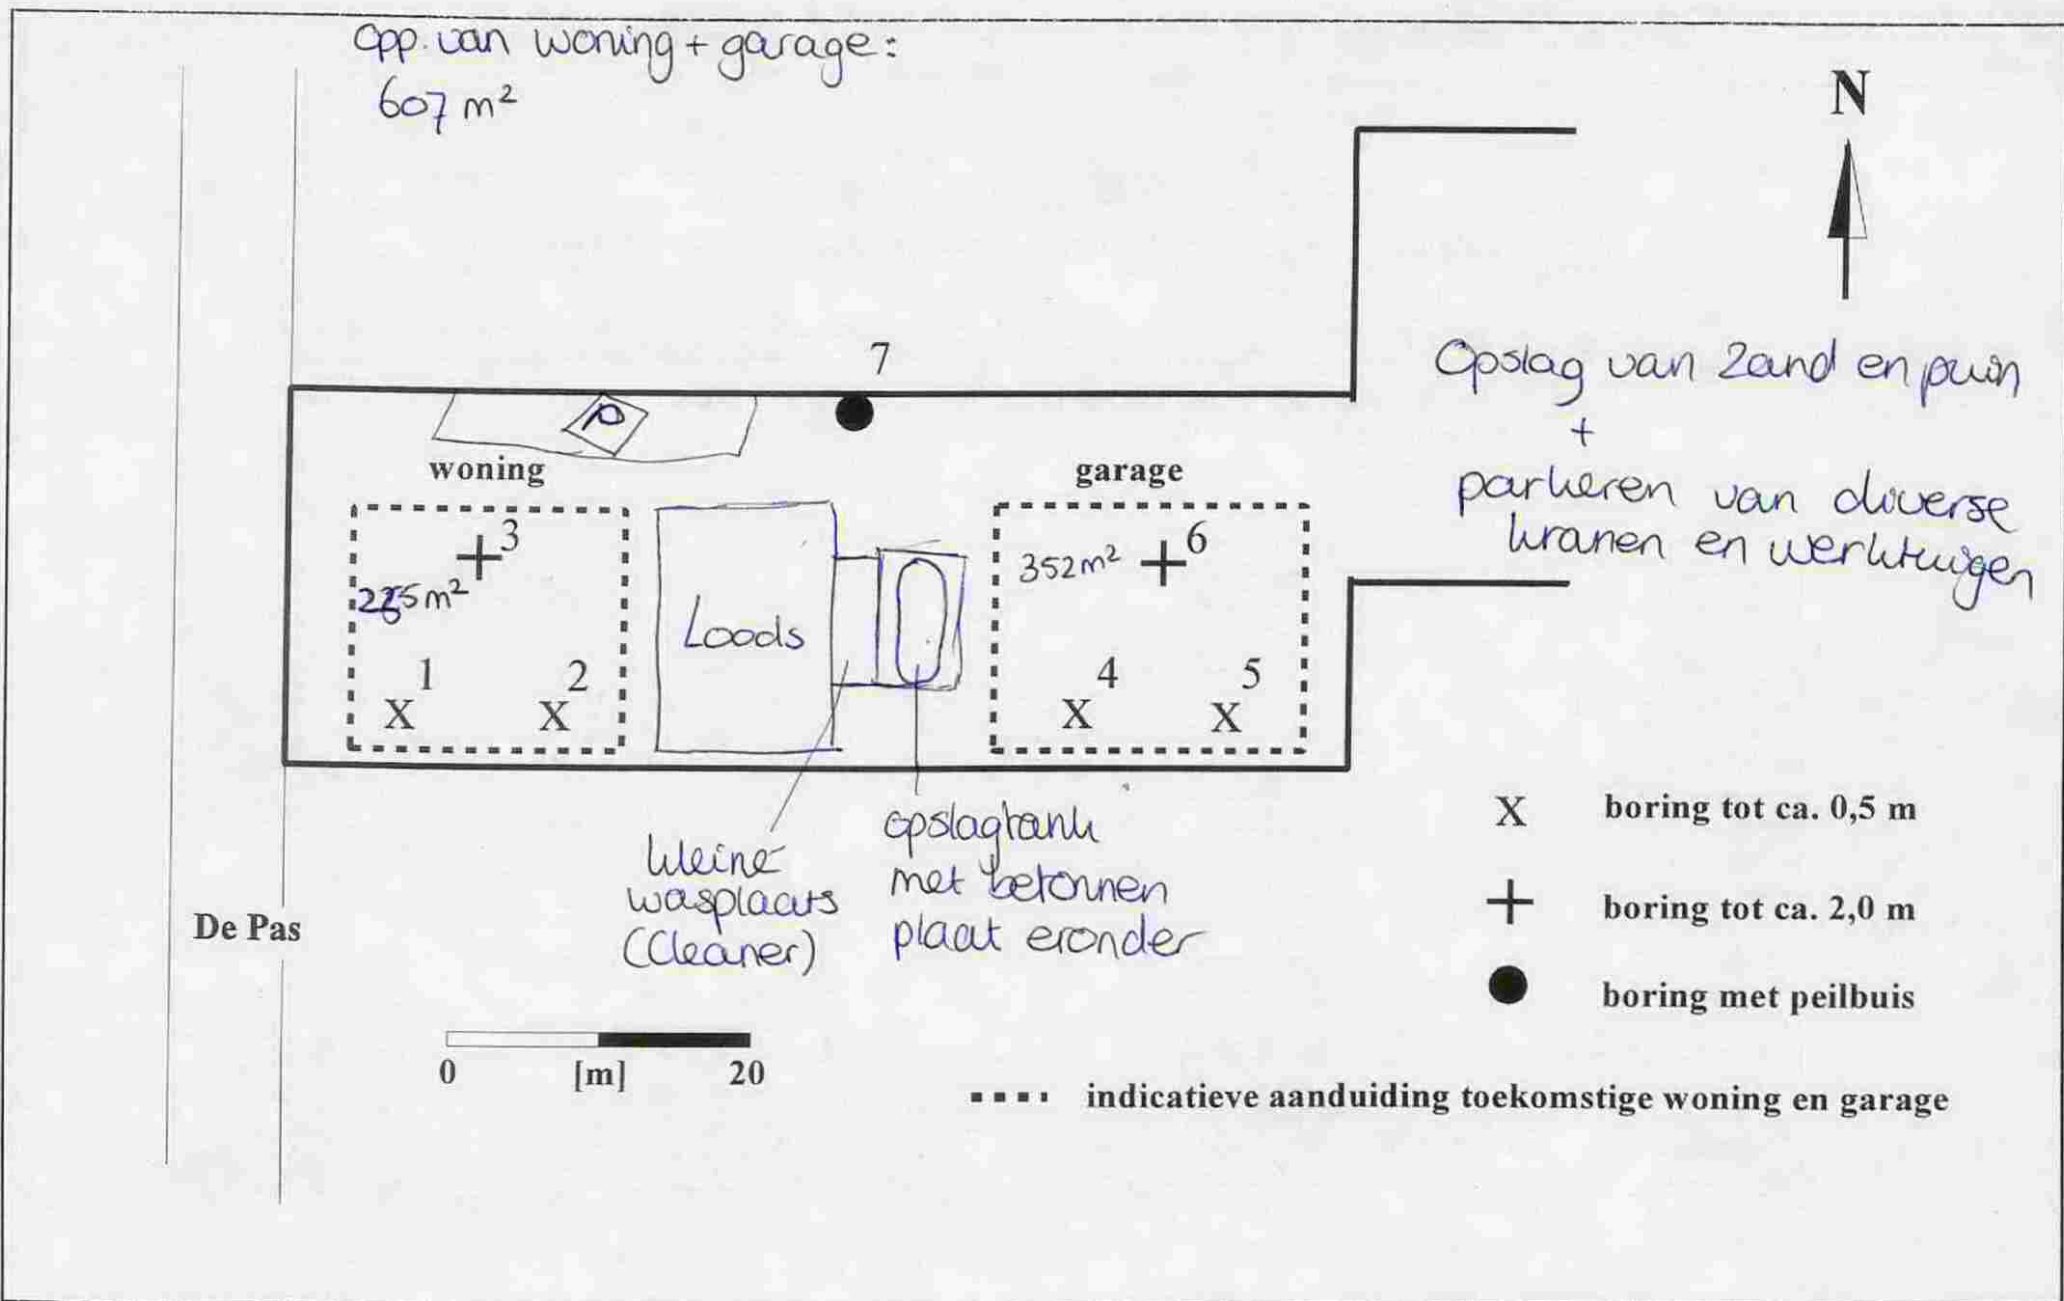 Opp. van woning + garage:
607 m²
N
7
Opslag van zand en puin
+
parkeren van diverse
kranen en werktuigen
P
woning
garage
3
255 m²
1
X
2
X
Loods
352 m²
6
4
X
5
X
kleine
wasplaats
(Cleaner)
opslagtank
met betonnen
plaat eronder
De Pas
X boring tot ca. 0,5 m
+ boring tot ca. 2,0 m
boring met peilbuis
0 [m] 20
indicatieve aanduiding toekomstige woning en garage